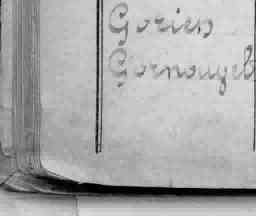 Gorien
Gornougeb